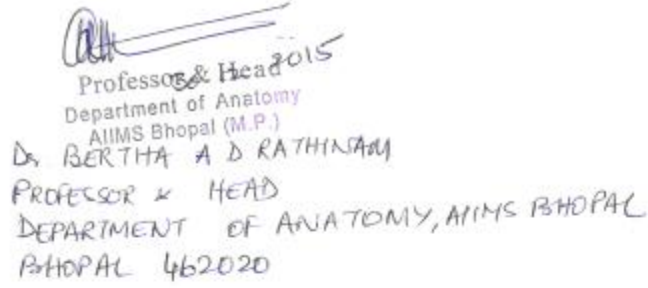 Professor & Head 2015
Department of Anatomy
AIIMS Bhopal (M.P.)
Dr BERTHA A D RATHINAM
PROFESSOR & HEAD
DEPARTMENT OF ANATOMY, AIIMS BHOPAL
BHOPAL 462020